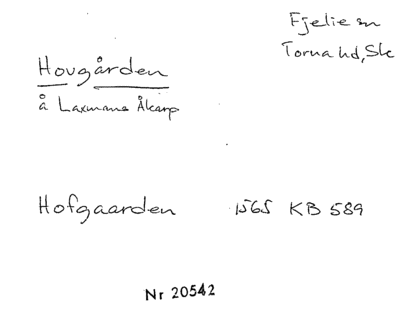 Fjelie sn
Torna hd, Sk
Hovgården
å Laxmans Åkarp
Hofgaarden 1565 KB 589
Nr 20542